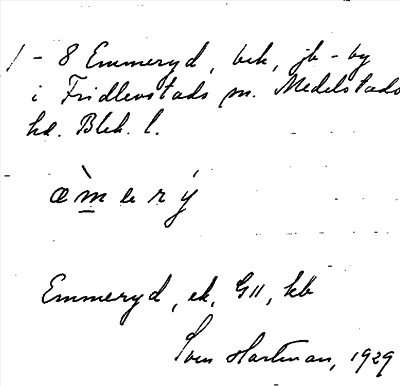 1 - 8 Emmeryd, bek, jb - by
i Fridlevstads sn. Medelstads
hd. Blek. l.
æ̀m̲erẏ
Emmeryd, ek, GII, kb
Sven Hartman, 1929